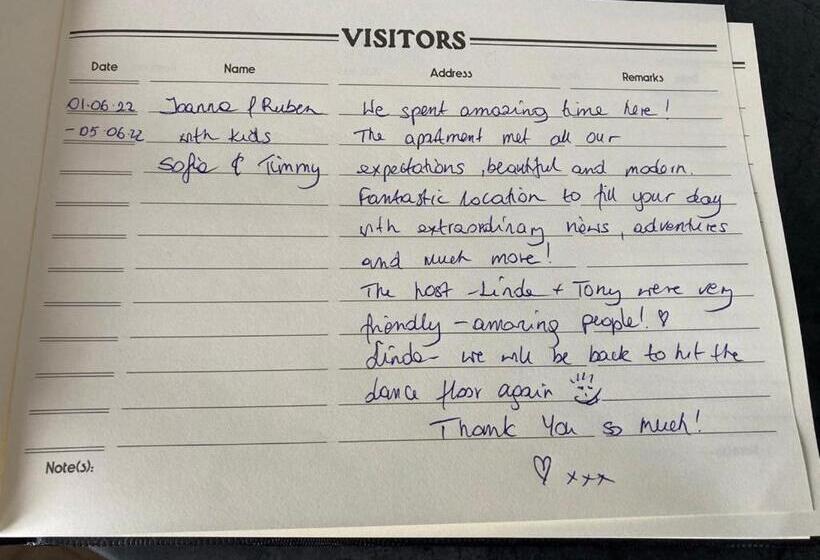 VISITORS
Date Name Address Remarks
01.06.22 Joanna & Ruben We spent amazing time here!
-05.06.22 with kids The apartment met all our
Sofia & Timmy expectations, beautiful and modern.
Fantastic location to fill your day
with extraordinary news, adventures
and much more!
The host -Linda + Tony were very
friendly - amazing people! ♡
Linda- we will be back to hit the
dance floor again
Thank You so much!
♡ xxx
Note(s):